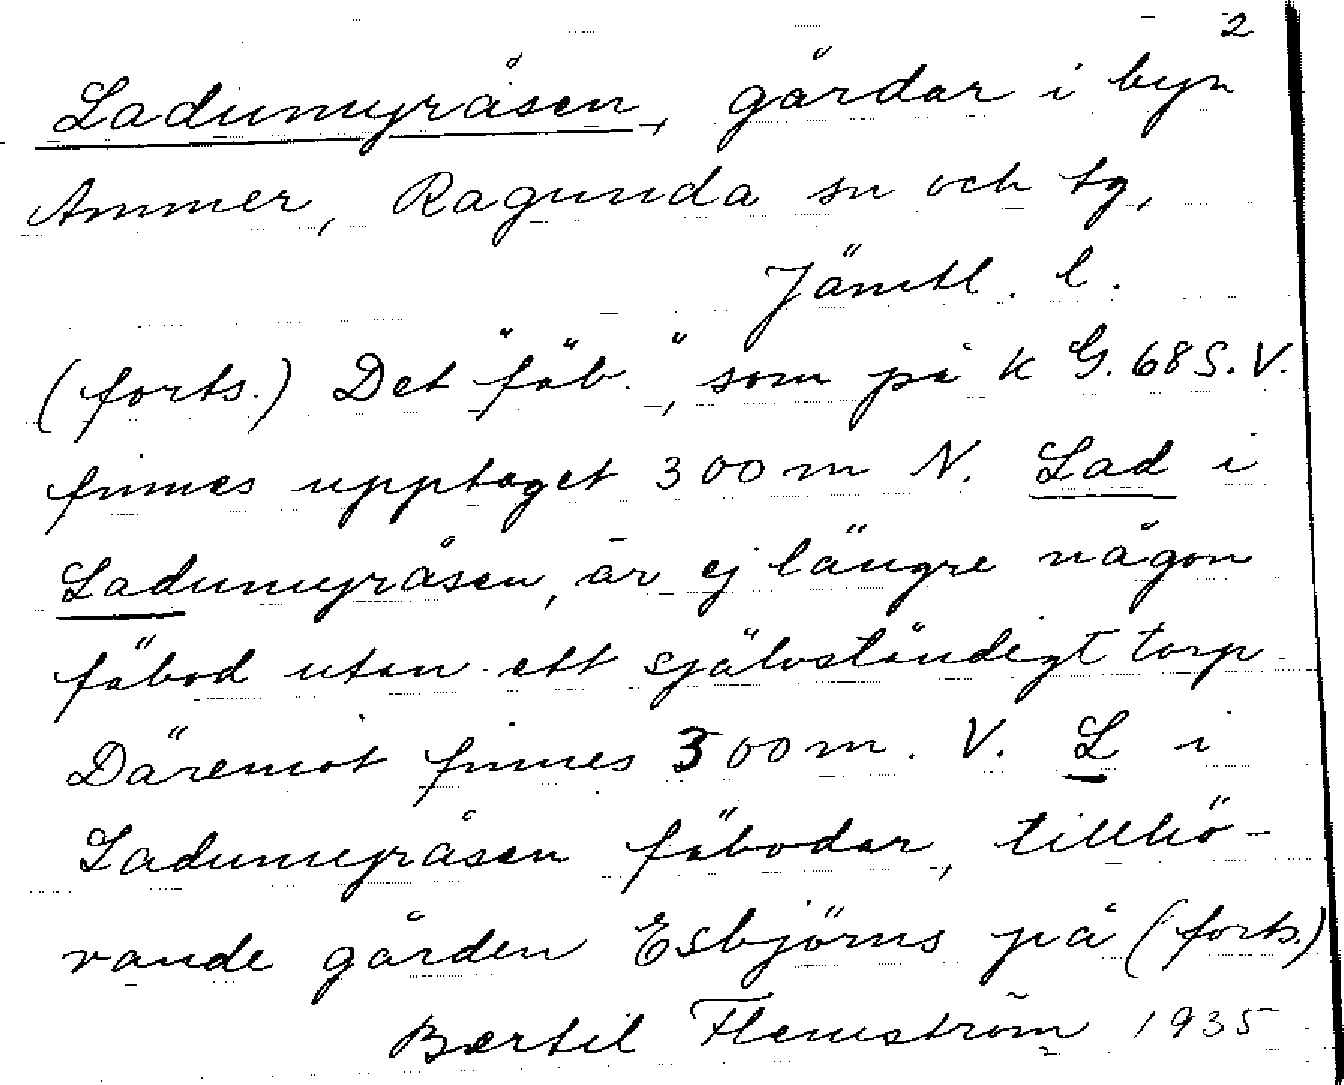 2
Ladumyråsen, gårdar i byn
Ammer, Ragunda sn och tg,
Jämtl. l.
(forts.) Det "fäb.", som på k G. 68 S. V.
finnes upptaget 300 m N. Lad i
Ladumyråsen, är ej längre någon
fäbod utan ett självständigt torp
Däremot finnes 300 m. V. L i
Ladumyråsen fäbodar, tillhö-
rande gården Esbjörns på (forts.)
Bertil Flemström 1935